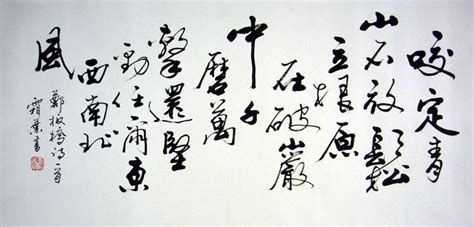 咬定青
山不放鬆
立根原
在破巖
中千磨萬
擊還堅
勁任爾東
西南北
風
鄭板橋詩一首
霜書